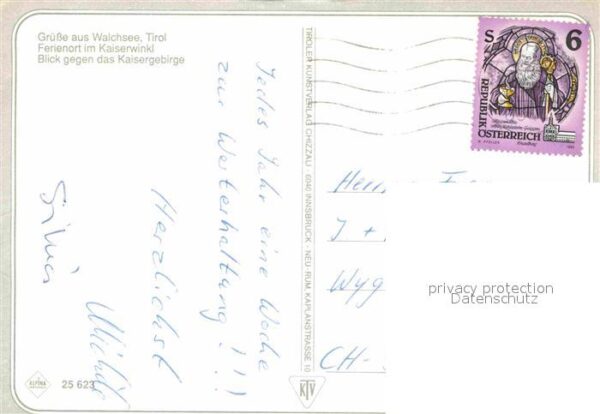 Grüße aus Walchsee, Tirol
Ferienort im Kaiserwinkl
Blick gegen das Kaisergebirge
Jedes Jahr eine Woche
zur Werterhaltung !!!
Herzlichst
Silvia
TIROLER KUNSTVERLAG CHIZZALI · 6040 INNSBRUCK · NEU-RUM, KAPLANSTRASSE 10
KTV
S 6
REPUBLIK
ÖSTERREICH
J +
Wyg
CH-
privacy protection
Datenschutz
ALPINA
25 623